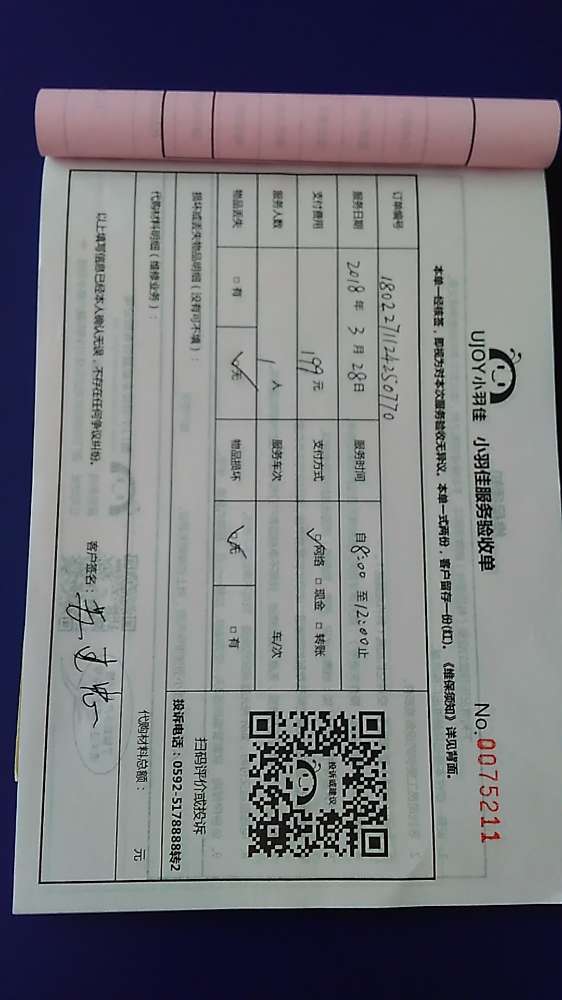 UJOY小羽佳 小羽佳服务验收单
No. 0075211
本单一经核签，即视为对本次服务验收无异议。本单一式两份，客户留存一份(红)。《维保须知》详见背面。
订单编号 1802271124250770
服务日期 2018 年 3 月 28 日 服务时间 自 8:00 至 12:00 止
支付费用 199 元 支付方式 ☑ 网络 □ 现金 □ 转账
服务人数 1 人 服务车次 车/次
物品丢失 □ 有 ☑ 无 物品损坏 ☑ 无 □ 有
投诉或建议
扫码评价或投诉
投诉电话：0592-5178888转2
损坏或丢失物品明细（没有可不填）：
代购材料明细（维修业务）：
代购材料总额： 元
以上填写信息已经本人确认无误，不存在任何争议纠纷。 客户签名：